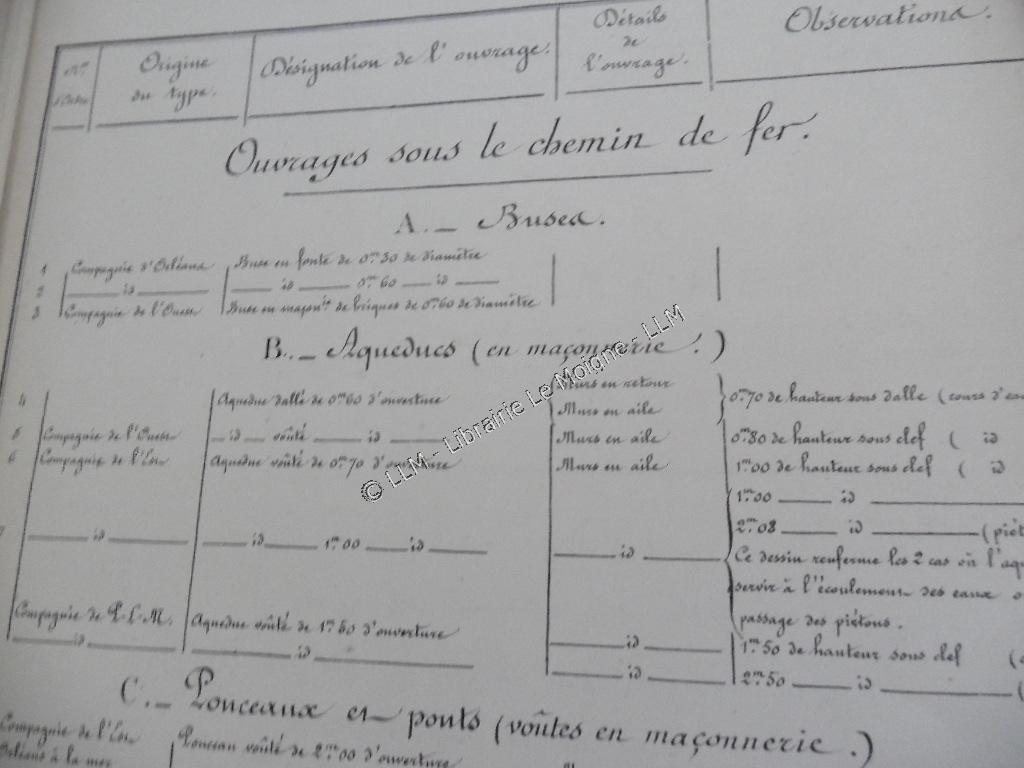 Nos d'Ordre Origine du type. Désignation de l'ouvrage. Détails de l'ouvrage. Observations.
Ouvrages sous le chemin de fer.
A. _ Buses.
1 Compagnie d'Orléans Buse en fonte de 0m30 de diamètre
2 id id 0m60 id
3 Compagnie de l'Ouest Buse en maçonie de briques de 0m60 de diamètre
B. _ Aqueducs (en maçonnerie.)
4 Aqueduc dallé de 0m60 d'ouverture Murs en retour
Murs en aile 0m70 de hauteur sous dalle (cours d'eau
5 Compagnie de l'Ouest id voûté id Murs en aile 0m80 de hauteur sous clef ( id
6 Compagnie de l'Est Aqueduc voûté de 0m70 d'ouverture Murs en aile 1m00 de hauteur sous clef ( id
1m00 id
2m08 id (piét
7 id id 1m00 id id Ce dessin renferme les 2 cas où l'aqu
servir à l'écoulement des eaux o
passage des piétons.
Compagnie de P.L.M. Aqueduc voûté de 1m50 d'ouverture id 1m50 de hauteur sous clef (
id id id 2m50 id (
C. _ Ponceaux et ponts (voûtes en maçonnerie.)
Compagnie de l'Est Ponceau voûté de 2m00 d'ouverture
Orléans à la mer
© LLM - Librairie Le Moigne - LLM